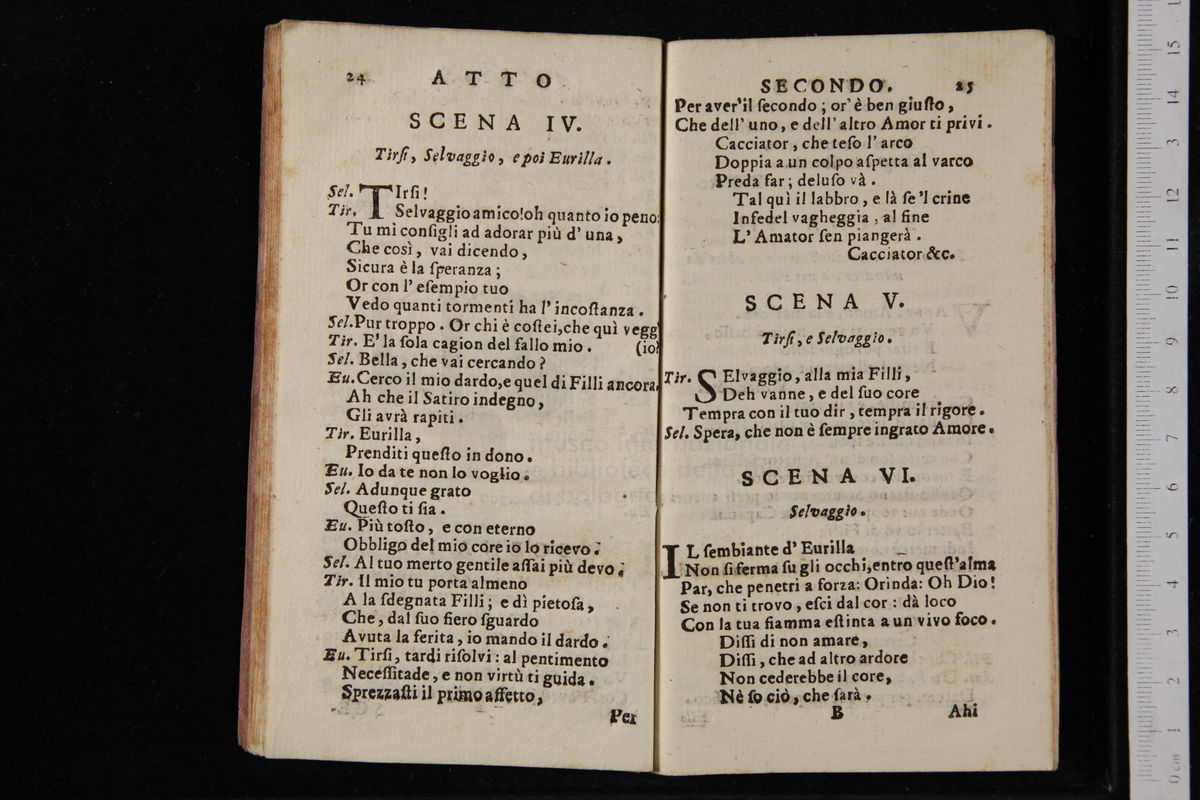 24 ATTO
SCENA IV.
Tirſi, Selvaggio, e poi Eurilla.
Sel. TIrſi!
Tir. Selvaggio amico! oh quanto io peno:
Tu mi conſigli ad adorar più d' una,
Che così, vai dicendo,
Sicura è la ſperanza;
Or con l' eſempio tuo
Vedo quanti tormenti ha l' incoſtanza.
Sel. Pur troppo. Or chi è coſtei, che quì vegg'
Tir. E' la ſola cagion del fallo mio. (io?
Sel. Bella, che vai cercando?
Eu. Cerco il mio dardo, e quel di Filli ancora.
Ah che il Satiro indegno,
Gli avrà rapiti.
Tir. Eurilla,
Prenditi queſto in dono.
Eu. Io da te non lo voglio.
Sel. Adunque grato
Queſto ti ſia.
Eu. Più toſto, e con eterno
Obbligo del mio core io lo ricevo.
Sel. Al tuo merto gentile aſſai più devo.
Tir. Il mio tu porta almeno
A la ſdegnata Filli; e dì pietoſa,
Che, dal ſuo fiero ſguardo
Avuta la ferita, io mando il dardo.
Eu. Tirſi, tardi riſolvi: al pentimento
Neceſſitade, e non virtù ti guida.
Sprezzaſti il primo affetto,
Per
SECONDO. 25
Per aver'il ſecondo; or' è ben giuſto,
Che dell' uno, e dell' altro Amor ti privi.
Cacciator, che teſo l' arco
Doppia a un colpo aſpetta al varco
Preda far; deluſo và.
Tal quì il labbro, e là ſe 'l crine
Infedel vagheggia, al fine
L' Amator ſen piangerà.
Cacciator &c.
SCENA V.
Tirſi, e Selvaggio.
Tir. SElvaggio, alla mia Filli,
Deh vanne, e del ſuo core
Tempra con il tuo dir, tempra il rigore.
Sel. Spera, che non è ſempre ingrato Amore.
SCENA VI.
Selvaggio.
IL ſembiante d' Eurilla
Non ſi ferma ſu gli occhi, entro queſt'alma
Par, che penetri a forza: Orinda: Oh Dio!
Se non ti trovo, eſci dal cor: dà loco
Con la tua fiamma eſtinta a un vivo foco.
Diſſi di non amare,
Diſſi, che ad altro ardore
Non cederebbe il core,
Nè ſo ciò, che ſarà.
B Ahi